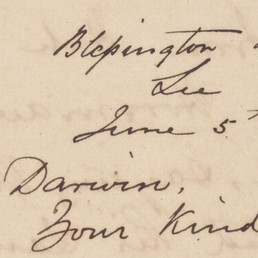 Blessington
Lee
June 5th
Darwin,
Your Kind